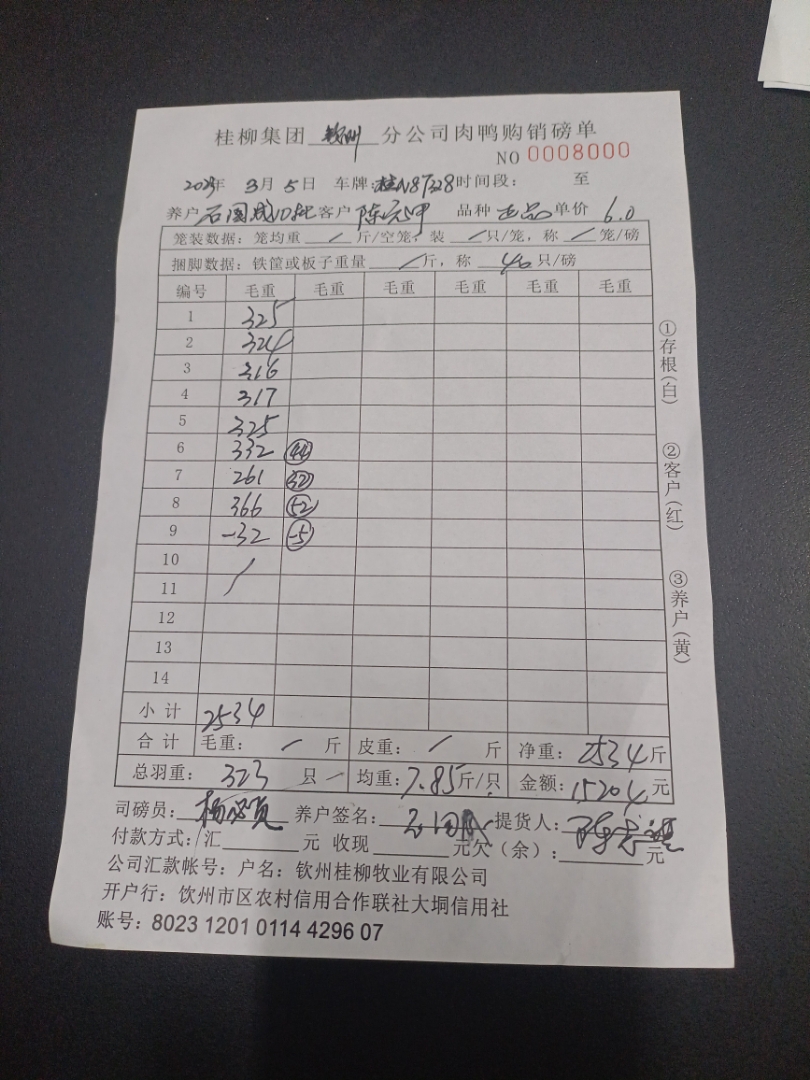 桂柳集团 钦州 分公司肉鸭购销磅单
NO 0008000
3月5日 车牌:桂N87328 时间段: 至
养户 石国成10批 客户 品种 正品 单价 6.0
笼装数据: 笼均重 / 斤/空笼, 装 / 只/笼, 称 / 笼/磅
捆脚数据: 铁筐或板子重量 / 斤, 称 40 只/磅
编号 毛重 毛重 毛重 毛重 毛重 毛重
1 325
2 324
3 316
4 317
5 325
6 332 44
7 261 32
8 366 52
9 -32 -5
10 /
11
12
13
14
小计 2534
合计 毛重: / 斤 皮重: / 斤 净重: 2534 斤
总羽重: 323 只 均重: 7.85 斤/只 金额: 15204 元
司磅员: 养户签名: 提货人:
付款方式:/汇 元 收现 元欠(余): 元
公司汇款帐号: 户名: 钦州桂柳牧业有限公司
开户行: 钦州市区农村信用合作联社大垌信用社
账号: 8023 1201 0114 4296 07
①存根(白)
②客户(红)
③养户(黄)